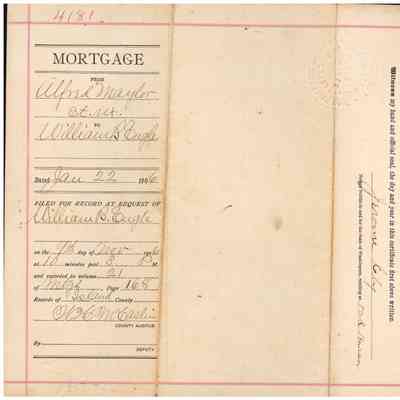 4181
MORTGAGE
FROM
Alfred Maylor
et ux.
TO
William B Engle
Dated Jan 22 1906
FILED FOR RECORD AT REQUEST OF
William B. Engle
on the 7th day of Mar 1906
at 10 minutes past 3 P M.
and recorded in volume 21
of Mtgs Page 168
Records of Island County
COUNTY AUDITOR
By
DEPUTY
Witness my hand and official seal, the day and year in this certificate first above written.
Jerome Ely
Notary Public in and for the State of Washington, residing at